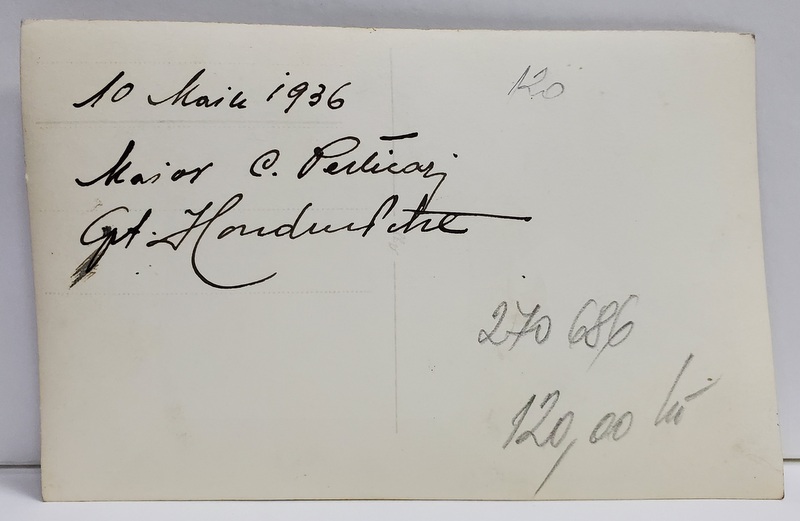 10 Maiu 1936
120
Maior C. Perticari
Cpt. Hondru Petre
270 686
120,00 lei